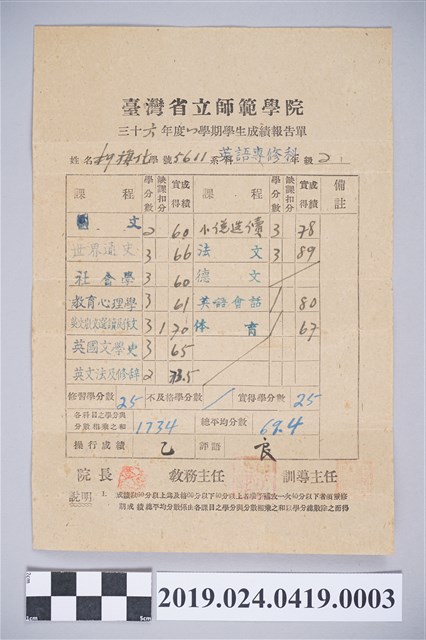 臺灣省立師範學院
三十六年度 學期學生成績報告單
姓名 柯 學號 5611 系科 英語專修科 年級 2
課程 學分數 缺課扣分 實得成績 課程 學分數 缺課扣分 實得成績 備註
國文 2 60 小說選讀 3 78
世界通史 3 66 法文 3 89
社會學 3 60 德文
教育心理學 3 61 英語會話 80
英文散文選讀及作文 3 1 70 体育 67
英國文學史 3 65
英文法及修辭 2 73.5
修習學分數 25 不及格學分數 實得學分數 25
各科目之學分與分數相乘之和 1734 總平均分數 69.4
操行成績 乙 評語 良
院長 教務主任 訓導主任
說明 1.
期成績總平均分數係由各課目之學分與分數相乘之和以學分總數除之而得
1cm 5cm
2019.024.0419.0003